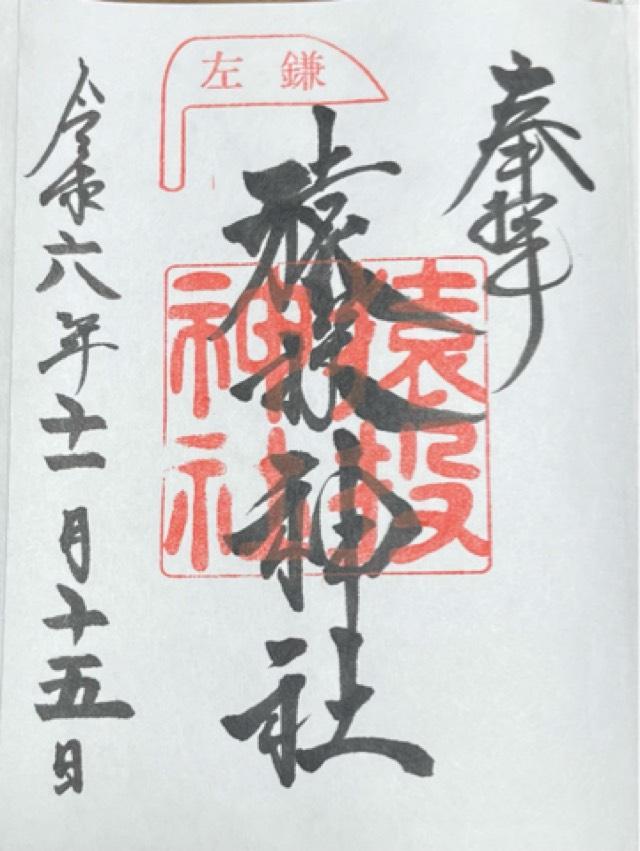 奉拝
左鎌
猿投神社
猿投
神社
令和六年十一月十五日